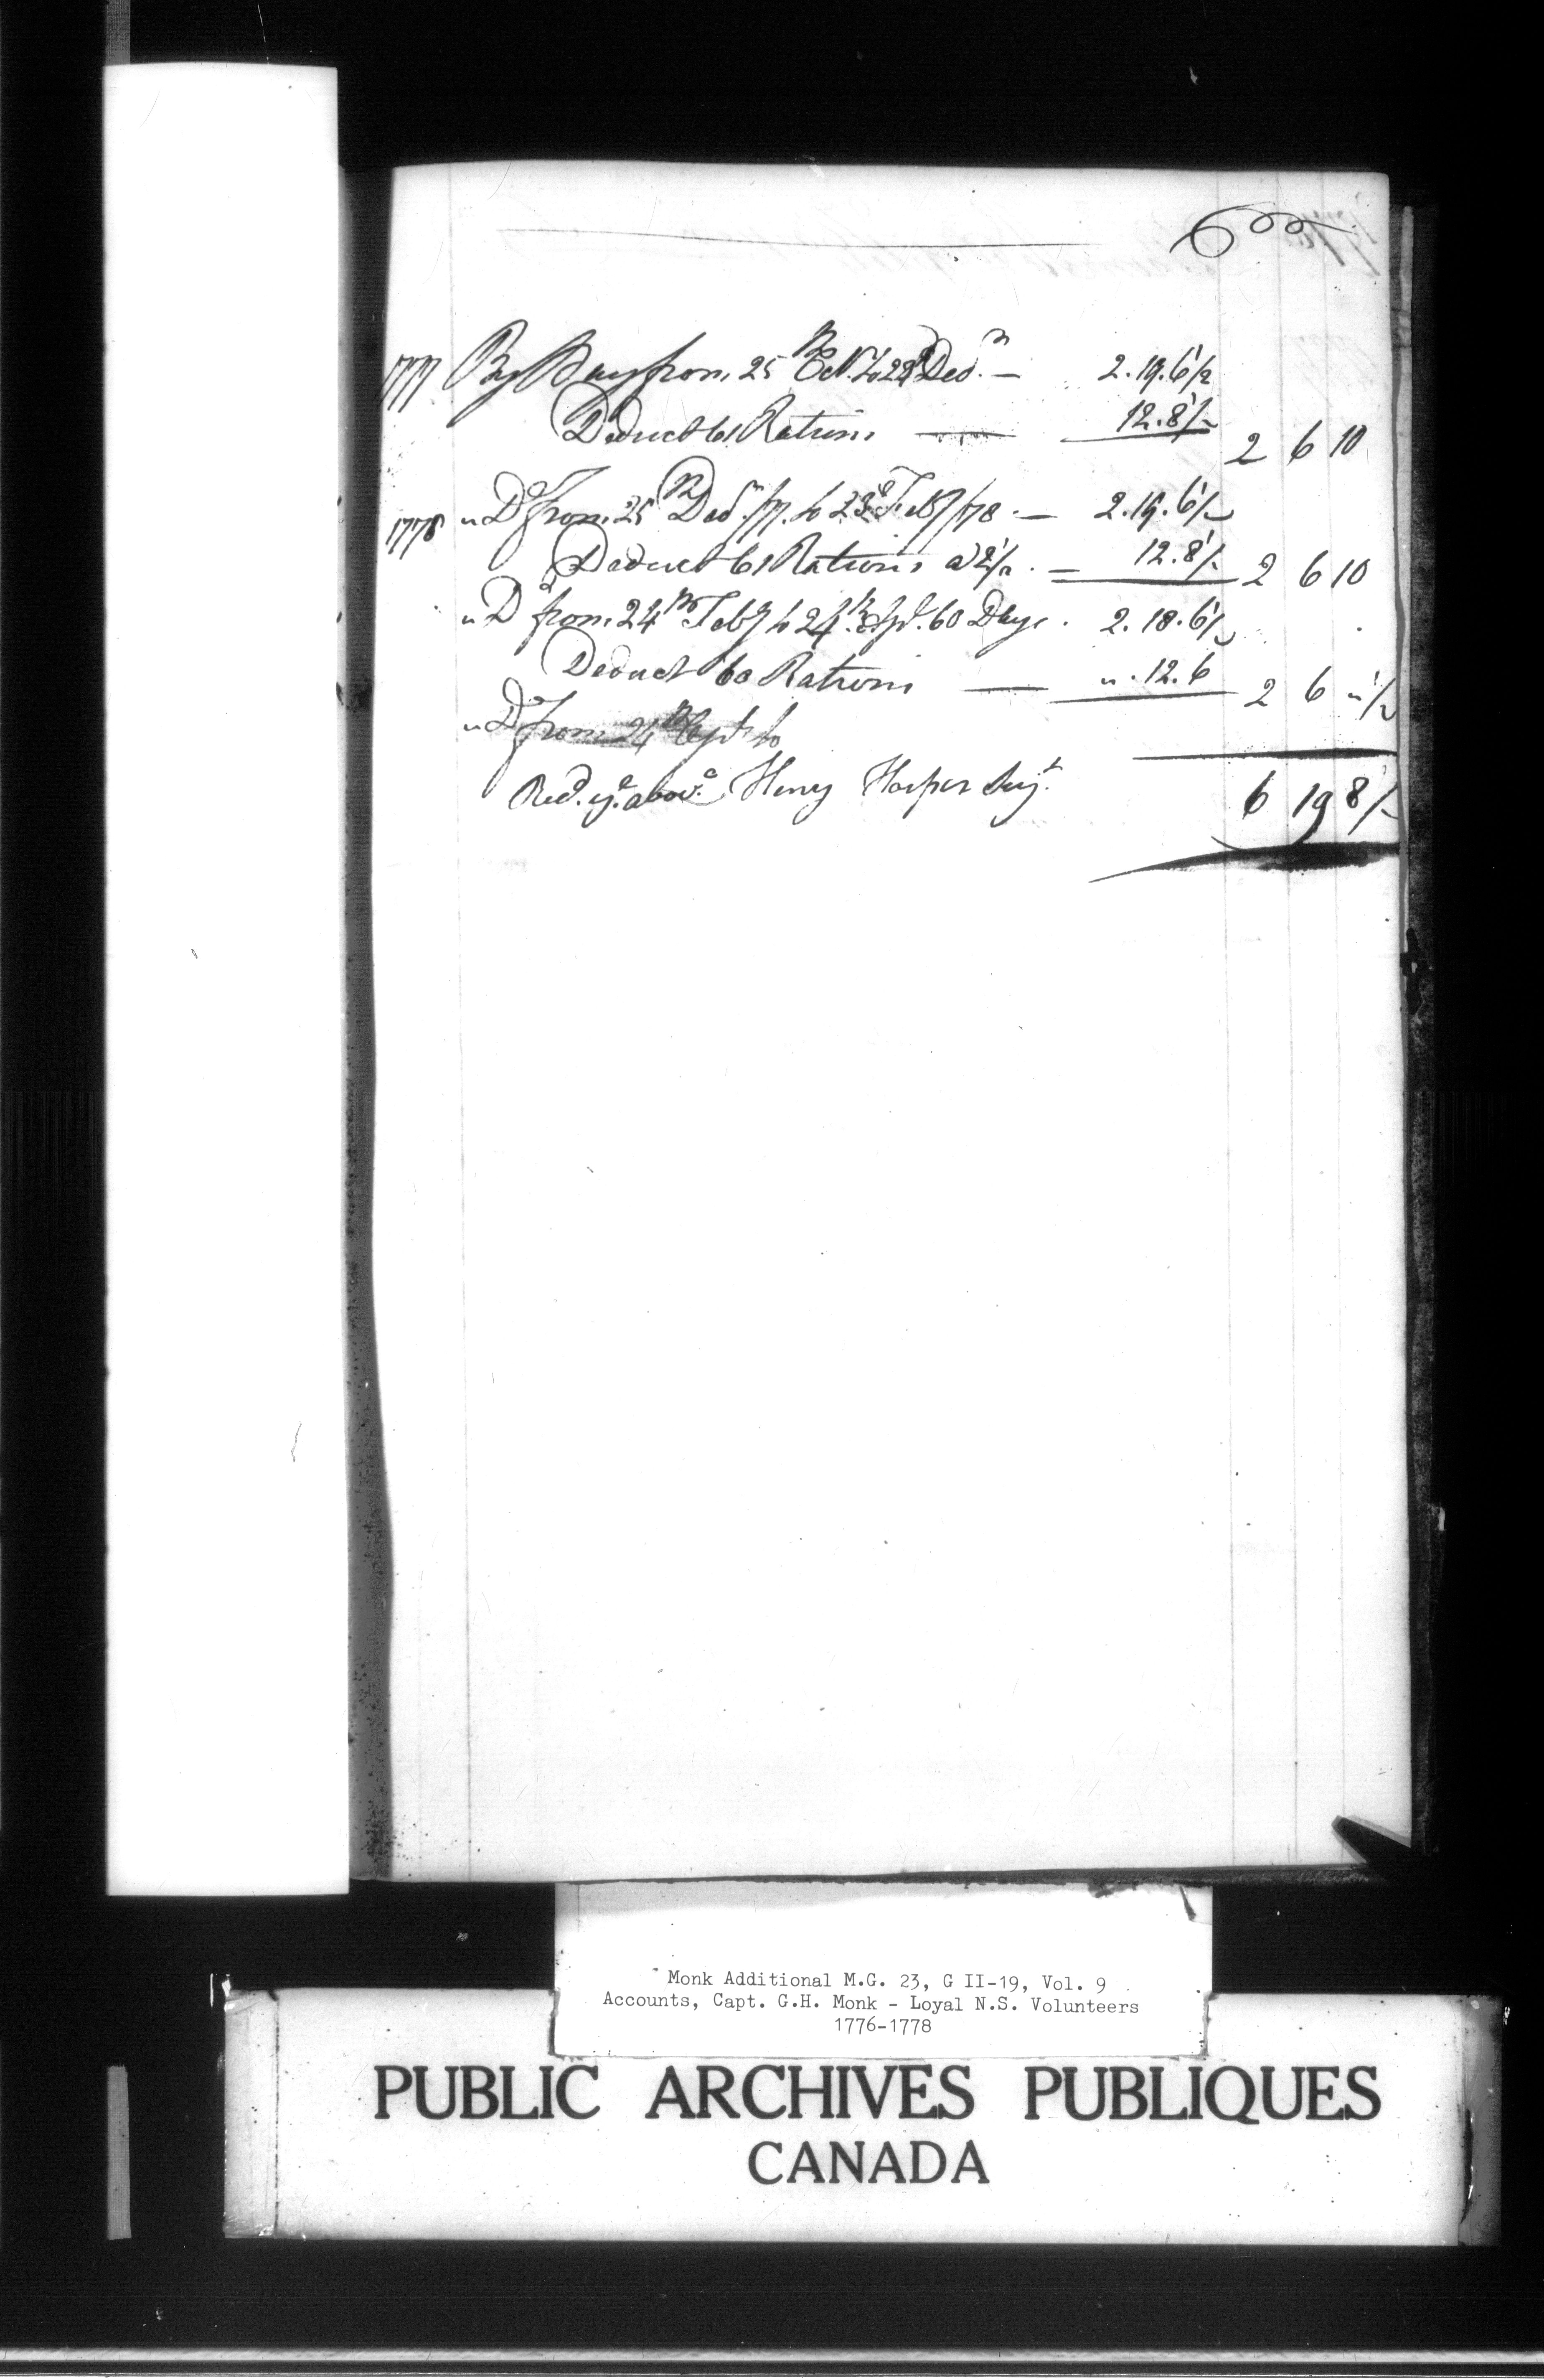 1777 By Pay from 25th Octr. to 24th Decr. — 2.19.6½
Deduct 61 Rations — 12.8½ 2 6 10
1778 " Do from 25th Decr./77. to 23d Feby/78 — 2.19.6½
Deduct 61 Rations a 2½ — 12.8½ 2 6 10
" Do from 24th Feby to 24th Apl. 60 Days. 2.18.6½
Deduct 60 Rations — ".12.6 2 6 "½
" Do from 24th Apl. to
Recd. ye. above Henry Harper Serjt. 6 19 8½
Monk Additional M.G. 23, G II-19, Vol. 9
Accounts, Capt. G.H. Monk - Loyal N.S. Volunteers
1776-1778
PUBLIC ARCHIVES PUBLIQUES
CANADA